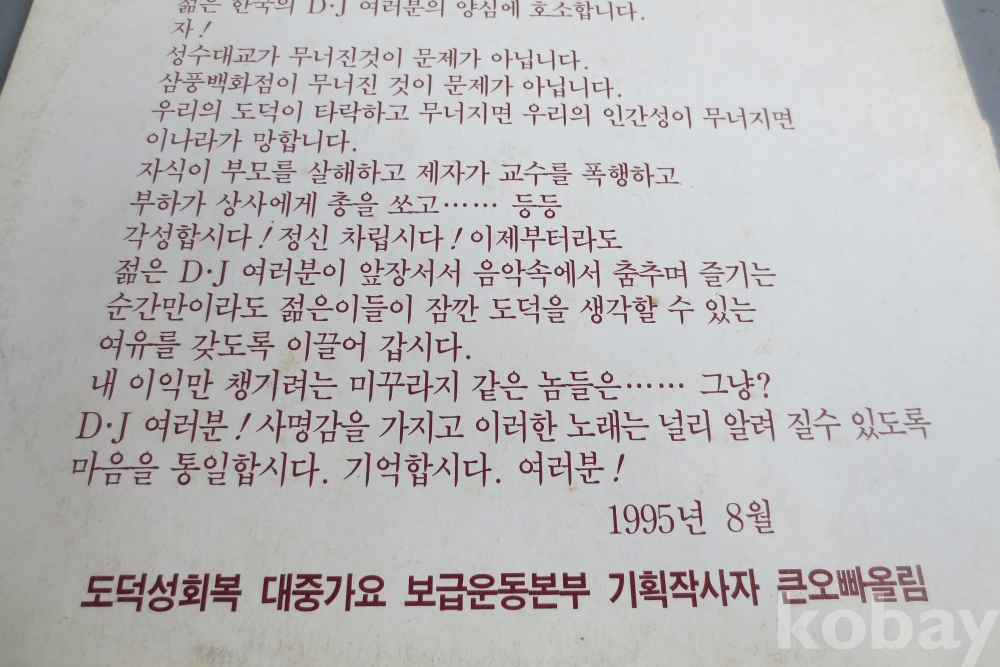 젊은 한국의 D·J 여러분의 양심에 호소합니다.
자!
성수대교가 무너진것이 문제가 아닙니다.
삼풍백화점이 무너진 것이 문제가 아닙니다.
우리의 도덕이 타락하고 무너지면 우리의 인간성이 무너지면
이나라가 망합니다.
자식이 부모를 살해하고 제자가 교수를 폭행하고
부하가 상사에게 총을 쏘고…… 등등
각성합시다! 정신 차립시다! 이제부터라도
젊은 D·J 여러분이 앞장서서 음악속에서 춤추며 즐기는
순간만이라도 젊은이들이 잠깐 도덕을 생각할 수 있는
여유를 갖도록 이끌어 갑시다.
내 이익만 챙기려는 미꾸라지 같은 놈들은…… 그냥?
D·J 여러분! 사명감을 가지고 이러한 노래는 널리 알려 질수 있도록
마음을 통일합시다. 기억합시다. 여러분!
1995년 8월
도덕성회복 대중가요 보급운동본부 기획작사자 큰오빠올림
kobay